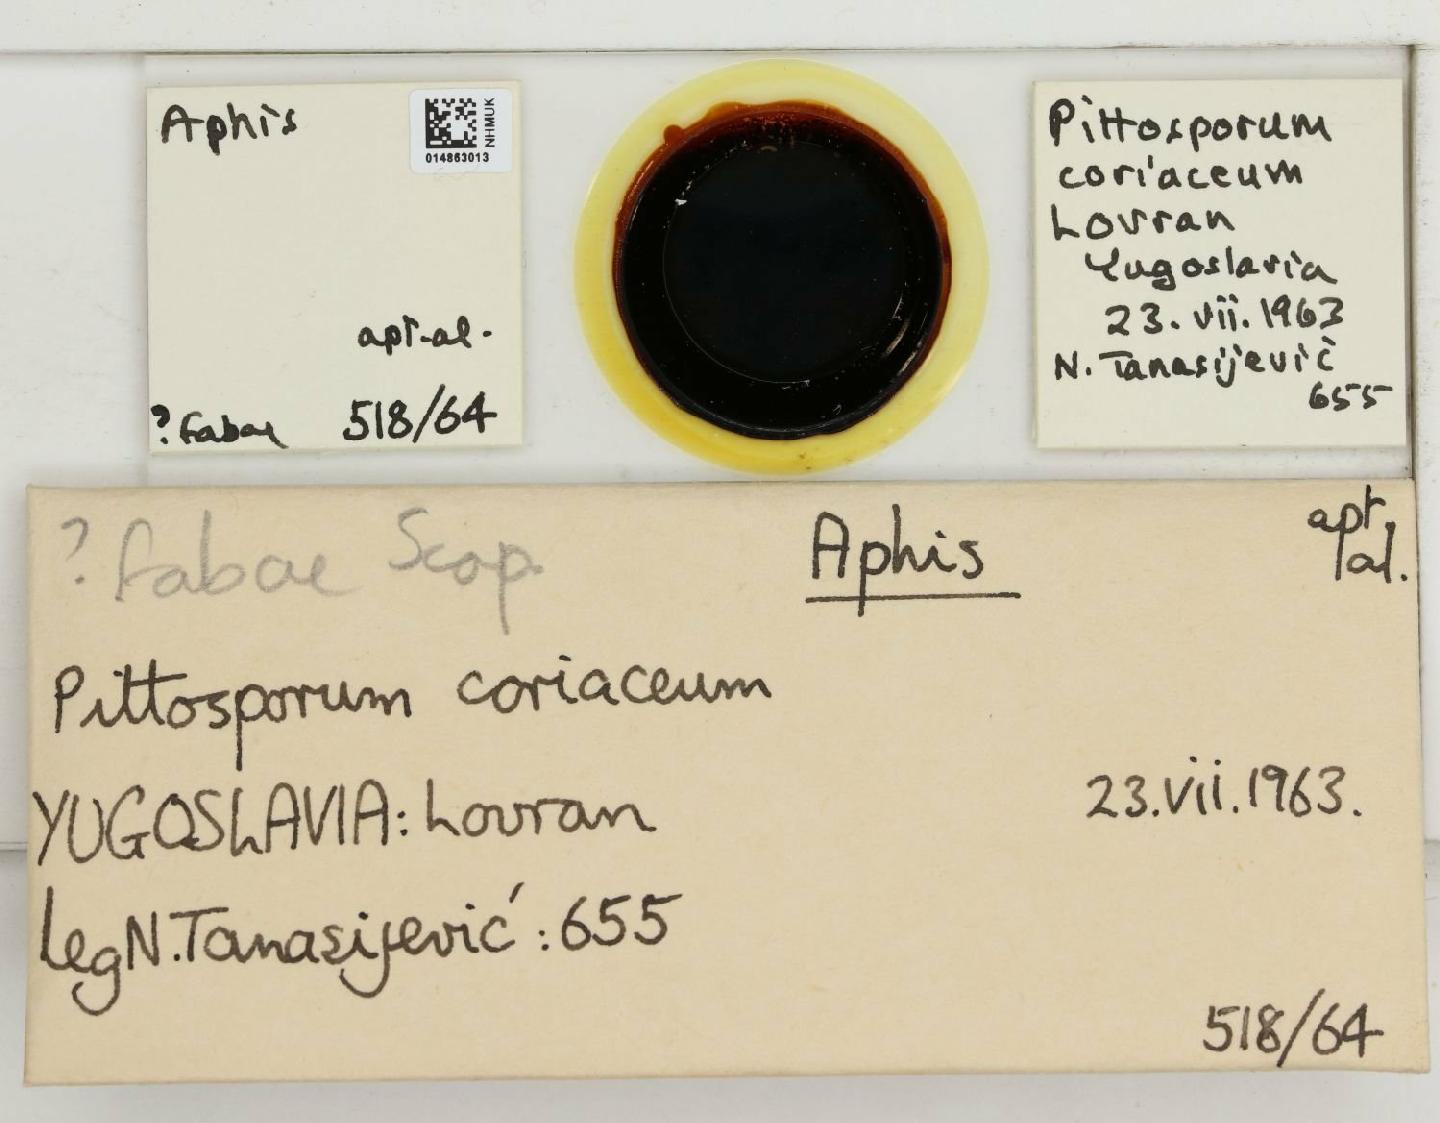 Aphis
NHMUK
014863013
apt.al.
? fabae 518/64
Pittosporum
coriaceum
Lovran
Yugoslavia
23.vii.1963
N. Tanasijević
655
? fabae Scop.
Aphis
apt.
al.
Pittosporum coriaceum
YUGOSLAVIA: Lovran 23.vii.1963.
leg N. Tanasijević: 655
518/64